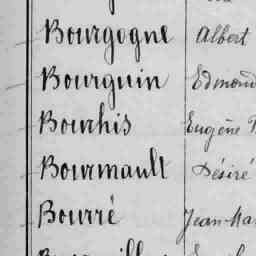 Bourgogne Albert
Bourguin Edmond
Bourhis Eugène
Bourmault Désiré
Bourré Jean-Ma